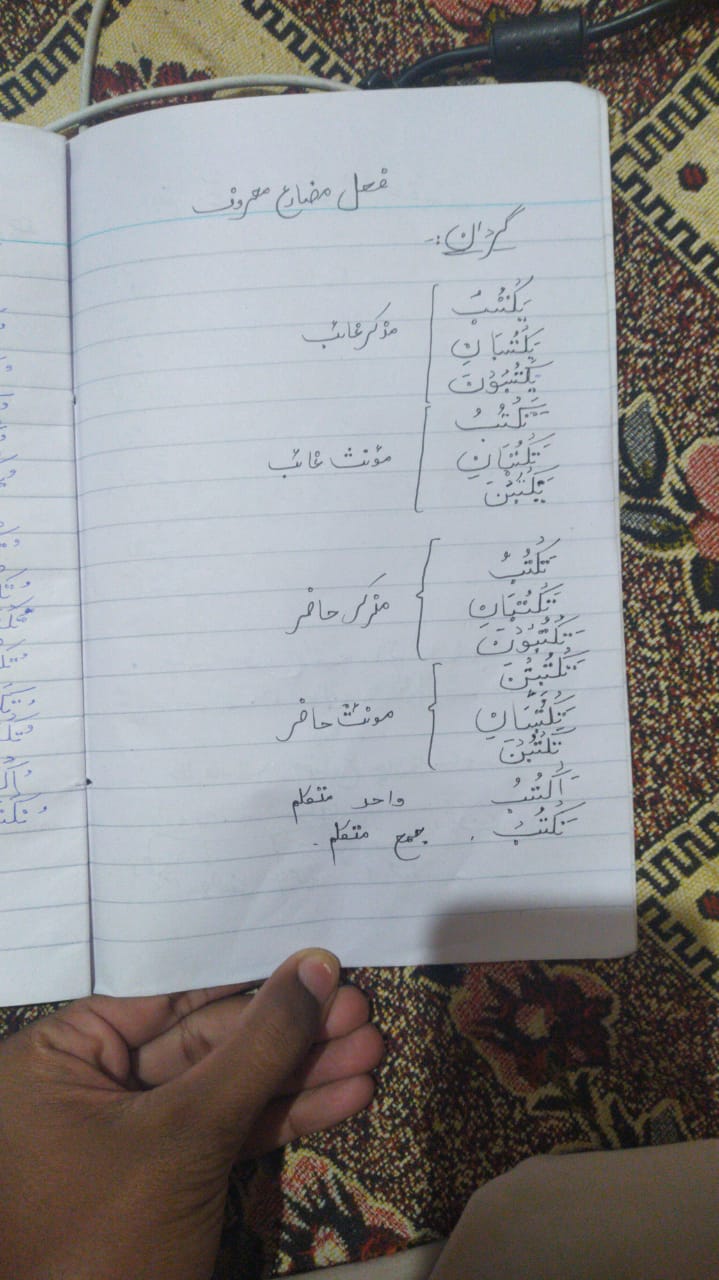 فعل مضارع معروف
گردان :-
يَكْتُبُ
يَكْتُبَانِ مذکر غائب
يَكْتُبُوْنَ
تَكْتُبُ
تَكْتُبَانِ مؤنث غائب
يَكْتُبْنَ
تَكْتُبُ
تَكْتُبَانِ مذکر حاضر
تَكْتُبُوْنَ
تَكْتُبِيْنَ
تَكْتُبَانِ مونث حاضر
تَكْتُبْنَ
اَكْتُبُ واحد متکلم
نَكْتُبُ . جمع متکلم .